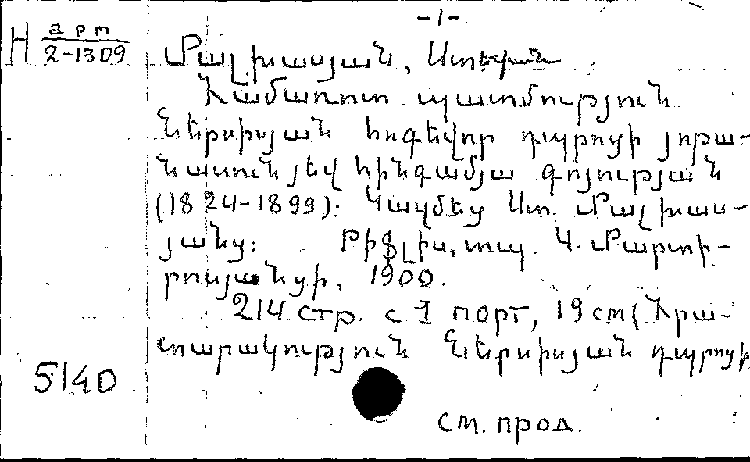 -1-
H арт
2-1309
Մալխասյան, Ստեփան
Համառոտ պատմություն
Ներսիսյան հոգեվոր դպրոցի յոթա-
նասուն յեվ հինգամյա գոյության
(1824-1899): Կազմեց Ստ. Մալխաս-
յանց: Թիֆլիս, տպ. Կ. Մարտի-
րոսյանցի, 1900.
214 стр. с 1 порт, 19 см (Հրա-
տարակություն Ներսիսյան դպրոցի
5140
см. прод.